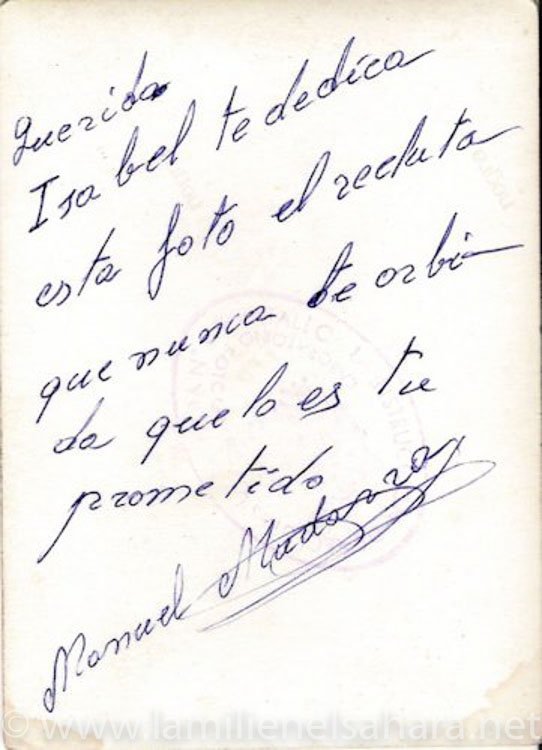 Querida
Isabel te dedica
esta foto el recluta
que nunca te orbi
da que lo es tu
prometido
Manuel
© www.lamilienelsahara.net